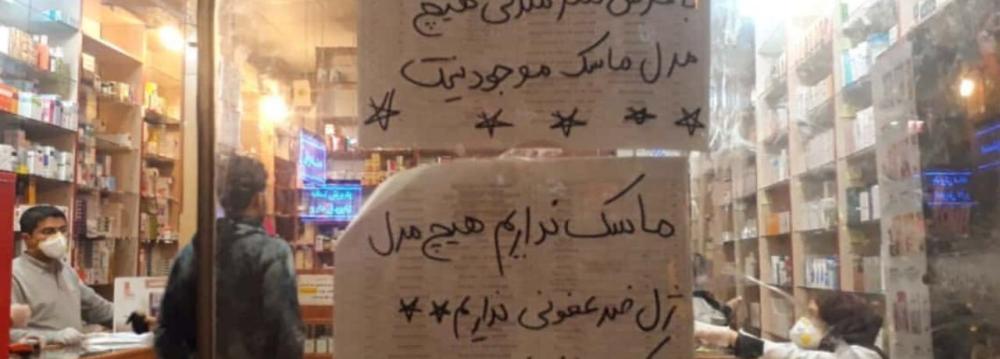 با عرض شرمندگی هیچ
مدل ماسک موجود نیست
ماسک نداریم هیچ مدل
ژل ضد عفونی نداریم**